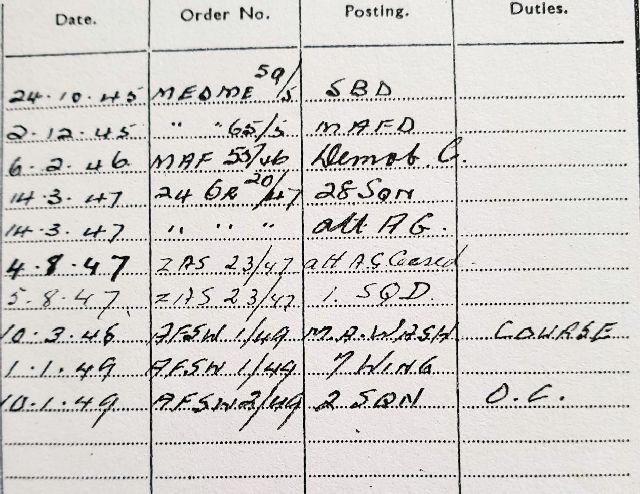 Date. Order No. Posting. Duties.
24.10.45 MEDME 59/5 SBD
2.12.45 " " 65/5 MAFD
6.2.46 MAF 53/46 Demob C.
14.3.47 24 GR 20/47 28 SQN
14.3.47 " " " att AG.
4.8.47 ZAS 23/47 att AG Ceased
5.8.47 ZAS 23/47 1 SQD
10.3.46 AFSW 1/49 M.A.WASH COURSE
1.1.49 AFSW 1/49 7 WING
10.1.49 AFSW 2/49 2 SQN O.C.